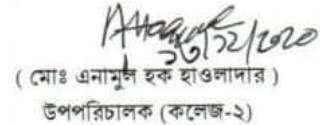 ২৩/১২/২০২০
( মোঃ এনামুল হক হাওলাদার )
উপপরিচালক (কলেজ-২)